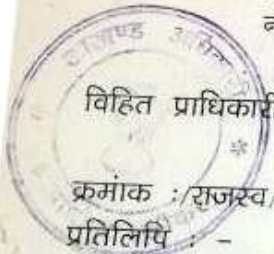 विहित प्राधिकारी
क्रमांक :/राजस्व/
प्रतिलिपि : -